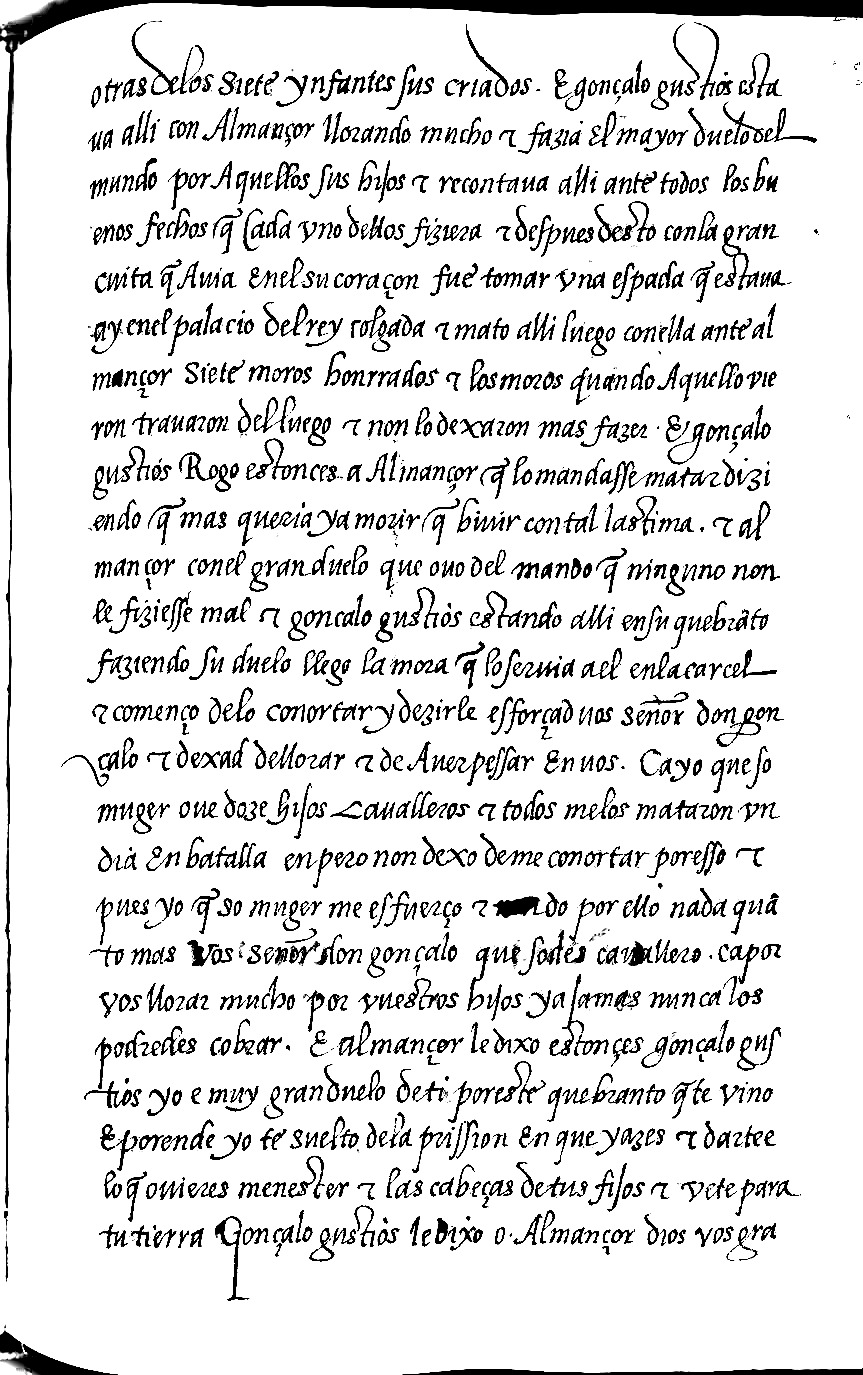 otras delos Siete ynfantes sus criados. E gonçalo gustiós esta
ua alli con Almançor llorando mucho τ fazia El mayor duelo del
mundo por Aquellos sus hijos τ recontaua alli ante todos los bu
enos fechos q̃ Cada vno dellos fiziera τ despues desto con la gran
cuita q̃ Auia Enel su coraçon fue tomar vna espada q̃ estaua
ay enel palacio del rey colgada τ mato alli luego conella ante al
mançor Siete moros honrrados τ los moros quando Aquello vie
ron trauaron del luego τ non lo dexaron mas fazer. E gonçalo
gustiós Rogo estonces a Almançor q̃ lo mandasse matar dizi
endo q̃ mas queria ya morir q̃ biuir con tal lastima. τ al
mançor conel gran duelo que ouo del mando q̃ ninguno non
le fiziesse mal τ goncalo gustiòs estando alli en su quebrãto
faziendo su duelo llego la mora q̃ lo seruia a el en la carcel
τ començo delo conortar y dezirle esforçad uos señor don gon
çalo τ dexad dellorar τ de Auer pessar En uos. Ca yo que so
muger oue doze hijos Cavalleros τ todos melos mataron vn
dià En batalla en pero non dexo deme conortar por esso τ
pues yo q̃ so muger me esfuerço τ do por ello nada quã
to mas Vos señor don gonçalo que sodes cavallero. ca por
vos llorar mucho por vuestros hijos ya jamas nunca los
podredes cobrar. E almançor le dixo estonçes gonçalo gus
tiòs yo e muy gran duelo de ti por este quebranto q̃ te vino
E porende yo te suelto dela prission En que yazes τ dartee
lo q̃ ouieres menester τ las cabeças de tus fijos τ vete para
tu tierra Gonçalo gustiòs le dixo o Almançor dios vos gra